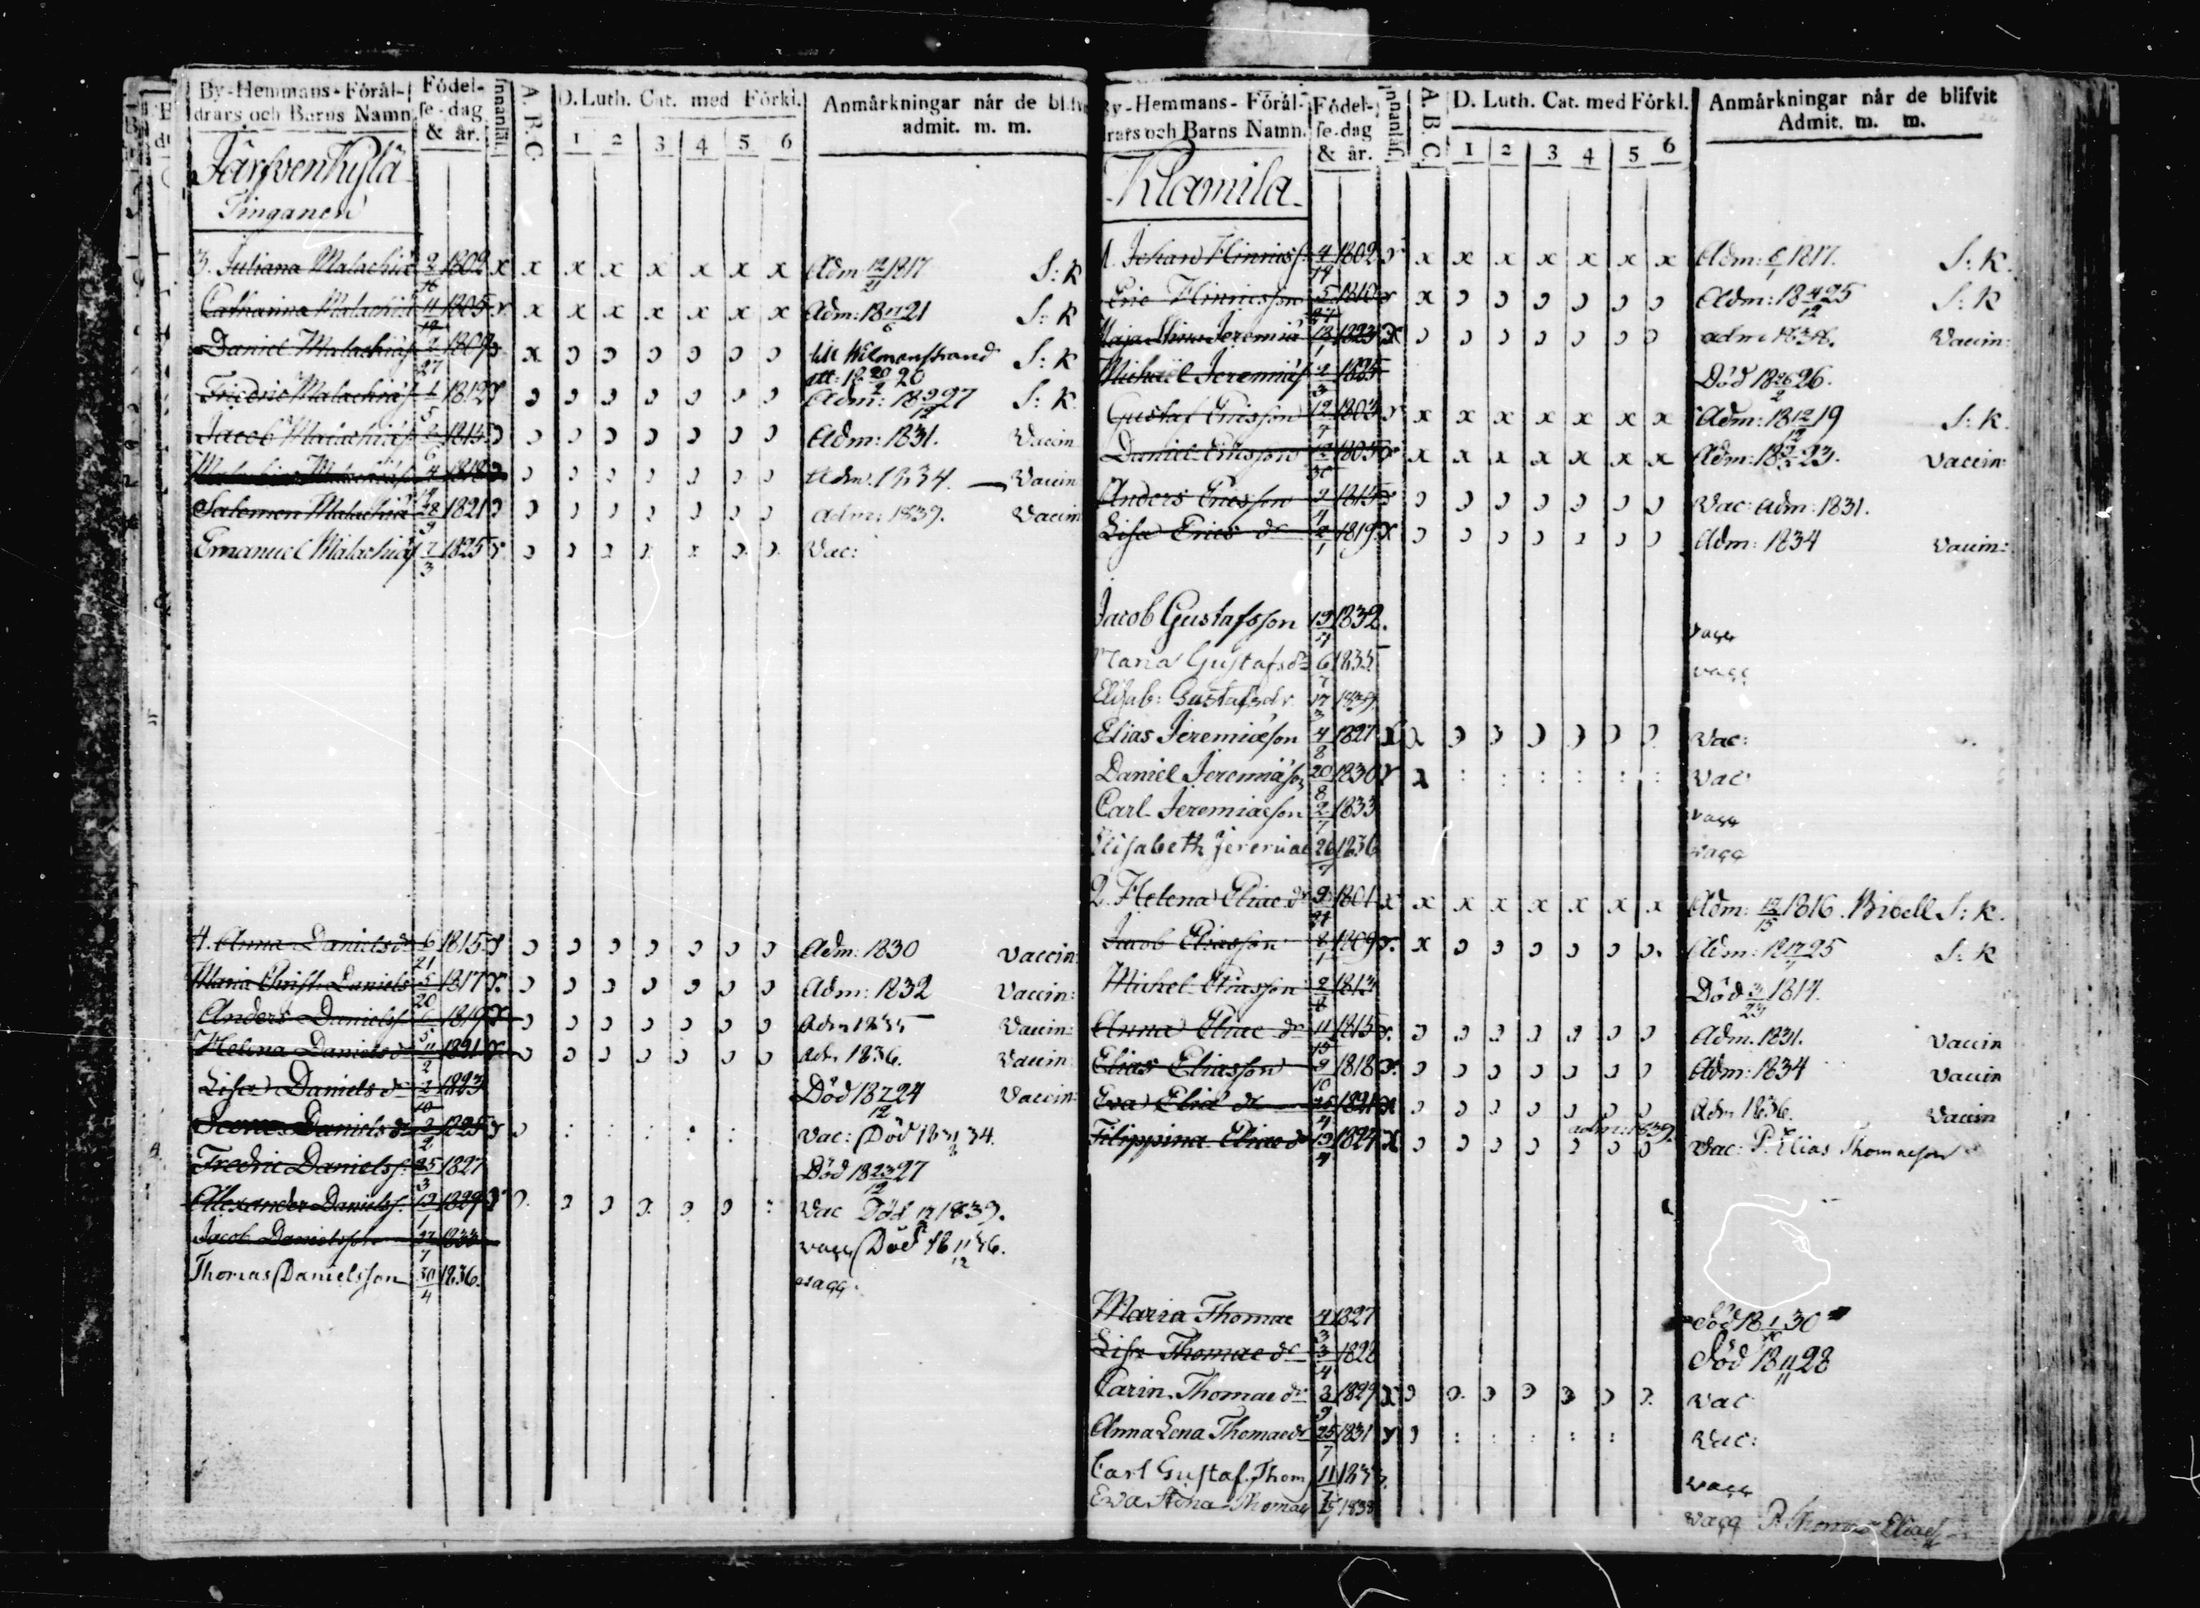 By-Hemmans-Förål-
drars och Barns Namn
Födel-
se-dag
& år.
Innanläs.
A. B. C.
D. Luth. Cat. med Förkl.
1 2 3 4 5 6
Anmärkningar når de blifv
admit. m. m.
Järfvenkylä
Tinganen
3. Juliana Malachiæ 2/16 1802 x x x x x x x x Adm 12/21 1817 S: K
Catharina Malachiæ 11/12 1805 x x x x x x x x Adm: 18 21 S: K
Daniel Malachiæs 1809 x till Wilmanstrand S: K
att: 18 20/2 20
Fridric Malachiæs 1/5 1812 Adm: 18 27 S: K
Jacob Malachiæs 1815 Adm: 1831. Vaccin
Malachias Malachiæs 4 1818 Adm. 1834. Vaccin
Salomon Malachiæ 28/9 1821 Adm: 1839. Vaccin
Emanuel Malachiæs 7/3 1825 Vac:
4. Anna Daniels dr 6/21 1815 Adm: 1830 Vaccin:
Maria Christ. Daniels 5/20 1817 Adm: 1832 Vaccin:
Anders Danielss. 6/5 1819 Adm 1835 Vaccin:
Helena Daniels dr 11/2 1821 Adm 1836. Vaccin
Lisa Daniels dr 2/10 1823 Död 18 7/12 24 Vaccin:
Daniels dr 3/2 1825 Vac: Död 18 34.
Fredric Danielss. 25/3 1827 Död 18 23/12 27
Alexander Danielss. 12/1 1829 Vac Död 1839.
Jacob Danielsson 27/7 1833 vacc Död 18 11/12 36.
Thomas Danielsson 30/4 1836. vacc.
By-Hemmans- Förål-
drars och Barns Namn.
Födel-
se-dag
& år.
Innanläs.
A. B. C.
D. Luth. Cat. med Förkl.
1 2 3 4 5 6
Anmärkningar når de blifvit
Admit. m. m.
Klamila
1. Johan Hinrics 4/19 1802 x x x x x x x Adm: 6/1 1817. S: K.
Eric Hinricsson 5/27 1810 x Adm: 18 4/12 25 S: K
Maja Stina Jeremiæ 18/1 1823 adm 1838. Vaccin:
Michaël Jeremiæs 2/3 1825 Död 18 26/2 26.
Gustaf Ericsson 12/7 1803 x x x x x x x Adm: 18 12/12 19 S: K.
Daniel Ericsson 12/30 1805 x x x x x x x Adm: 18 23. Vaccin
Anders Ericsson 9/4 1815 Vac: Adm: 1831.
Lisa Erics dr 2/1 1819 Adm: 1834 Vaccin:
Jacob Gustafsson 19/4 1832. vacc
Maria Gustafsdr 6/7 1835 vacc
Elisab: Gustafsdr 17/3 1839.
Elias Jeremiæson 4/8 1827 Vac:
Daniel Jeremiæson 20/8 1830 Vac
Carl Jeremiæson 2/7 1833 vacc
Elisabeth Jeremiae 26/7 1836 vacc
2. Helena Eliae dr 9/21 1801 x x x x x x x x Adm: 12/15 1816. S: K.
Jacob Eliasson 8/1 1809 x Adm: 18 25 S: K
Michel Eliasson 2/8 1813 Död 3/23 1814.
Anna Eliae dr 11/15 1815 Adm. 1831. Vaccin
Elias Eliasson 9/10 1818 Adm: 1834 Vaccin
Eva Eliæ dr 25/4 1821 Adm 1836. Vaccin
adm: 1839.
Filippina Eliae dr 12/4 1824 Vac: P. Elias Thomæson
Maria Thomae 4/3 1827 död 18 1/10 30
Lisa Thomae dr 3/4 1828 död 18 11/11 28
Carin Thomae dr 3/9 1829 Vac
Anna Lena Thomae dr 25/7 1831 Vac:
Carl Gustaf. Thom 11 1833. vacc
Eva Stina Thomae 1838 vacc P. Thomas Eliaes